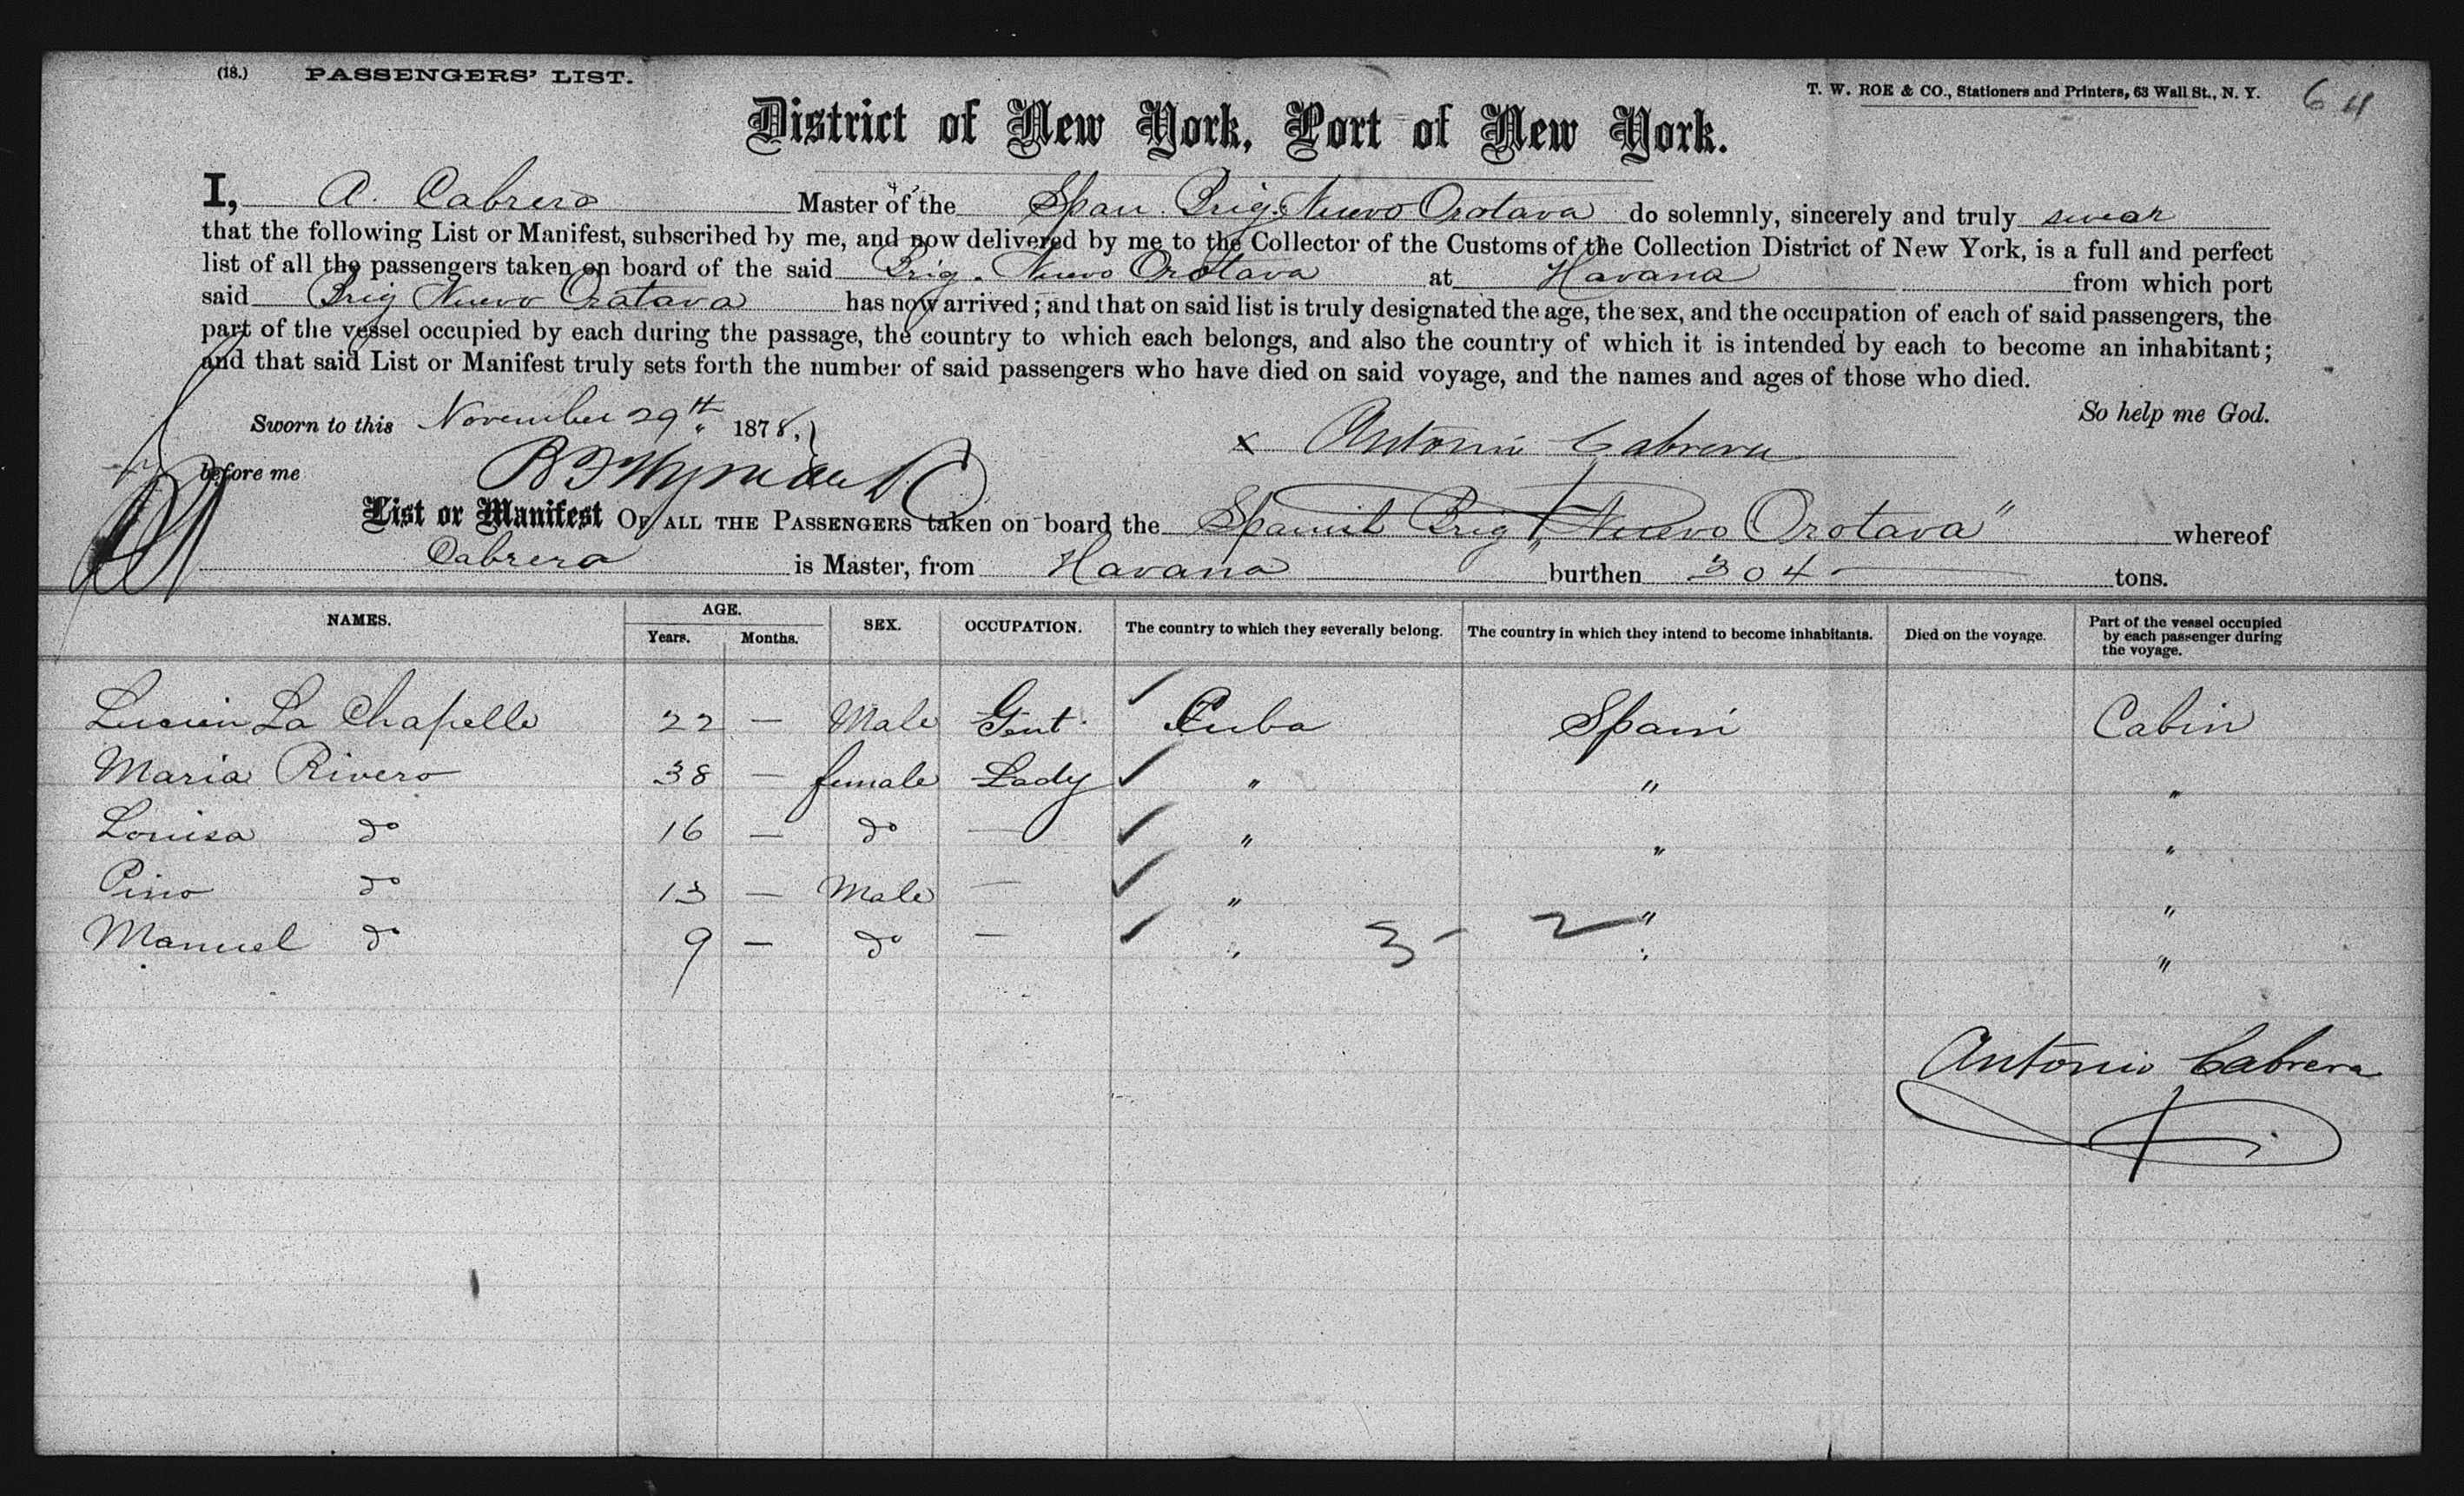 (18.) PASSENGERS' LIST.
T. W. ROE & CO., Stationers and Printers, 63 Wall St., N. Y. 64
District of New York, Port of New York.
I, A. Cabrera Master of the Span. Brig. "Nuevo Orotava do solemnly, sincerely and truly swear
that the following List or Manifest, subscribed by me, and now delivered by me to the Collector of the Customs of the Collection District of New York, is a full and perfect
list of all the passengers taken on board of the said Brig. Nuevo Orotava at Havana from which port
said Brig Nuevo Orotava has now arrived; and that on said list is truly designated the age, the sex, and the occupation of each of said passengers, the
part of the vessel occupied by each during the passage, the country to which each belongs, and also the country of which it is intended by each to become an inhabitant;
and that said List or Manifest truly sets forth the number of said passengers who have died on said voyage, and the names and ages of those who died.
So help me God.
Sworn to this November 29th 1878,
x Antonio Cabrera
before me
List or Manifest OF ALL THE PASSENGERS taken on board the Spanish Brig "Nuevo Orotava" whereof
Cabrera is Master, from Havana burthen 304 tons.
NAMES. AGE. Years. Months. SEX. OCCUPATION. The country to which they severally belong. The country in which they intend to become inhabitants. Died on the voyage. Part of the vessel occupied by each passenger during the voyage.
Lucien La Chapelle 22 — Male Gent. Cuba Spain Cabin
Maria Rivero 38 — female Lady " " "
Louisa do 16 — do — " " "
Pino do 13 — Male — " " "
Manuel do 9 — do — " 3 - 2 " "
Antonio Cabrera